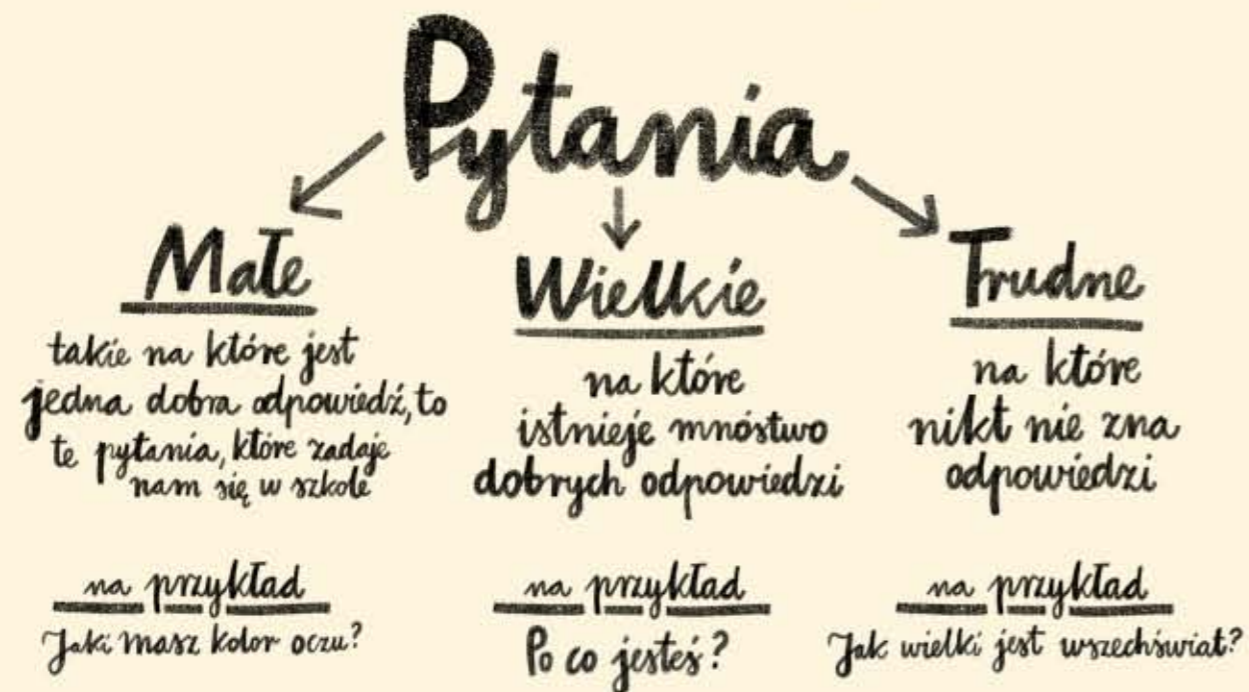 Pytania
Małe
takie na które jest
jedna dobra odpowiedź, to
te pytania, które zadaje
nam się w szkole
na przykład
Jaki masz kolor oczu?
Wielkie
na które
istnieje mnóstwo
dobrych odpowiedzi
na przykład
Po co jesteś?
Trudne
na które
nikt nie zna
odpowiedzi
na przykład
Jak wielki jest wszechświat?